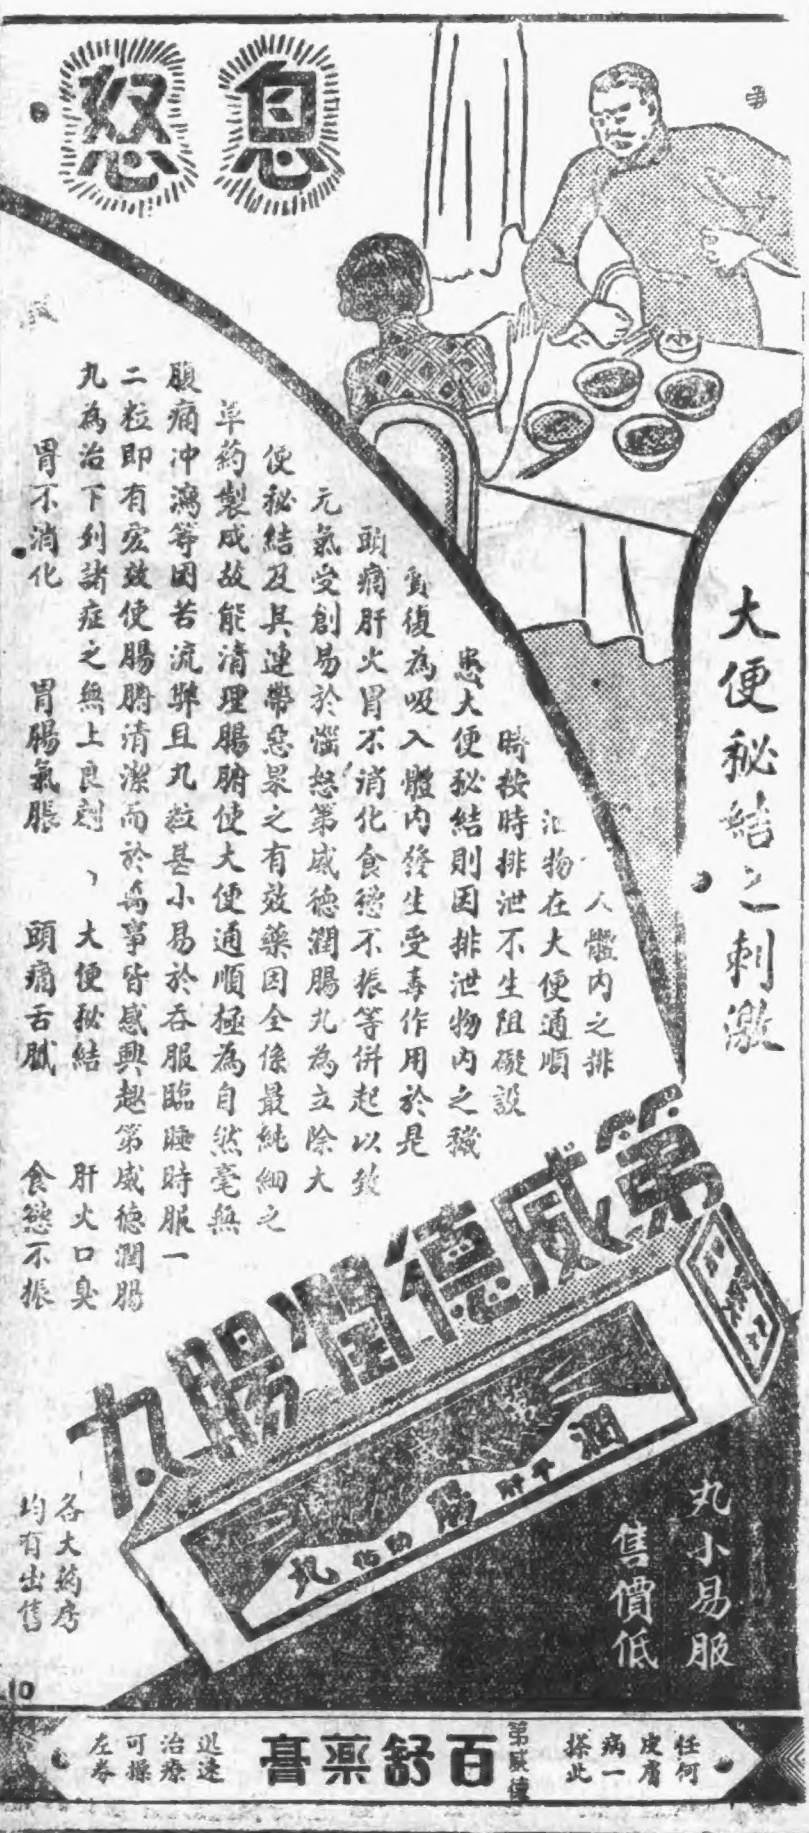 息怒
大便秘結之刺激
人體內之排
泄物在大便通順
時按時排泄不生阻礙設
患大便秘結則因排泄物內之穢
質復為吸入體內發生受毒作用於是
頭痛肝火胃不消化食慾不振等併起以致
元氣受創易於惱怒第威德潤腸丸為立除大
便秘結及其連帶惡果之有效藥因全係最純細之
草药製成故能清理腸腑使大便通順極為自然毫無
腹痛冲瀉等困苦流弊且丸粒甚小易於吞服臨睡時服一
二粒即有宏效使腸腑清潔而於萬事皆感興趣第威德潤腸
丸為治下列諸症之無上良劑、大便秘結 肝火口臭
胃不消化 胃腸氣脹 頭痛舌膩 食慾不振
第威德潤腸丸
潤
平肝
腸
丸
丸小易服
售價低
各大药房
均有出售
10
任何
皮膚
病一
搽此
第威德
百舒藥膏
迅速
治療
可操
左券